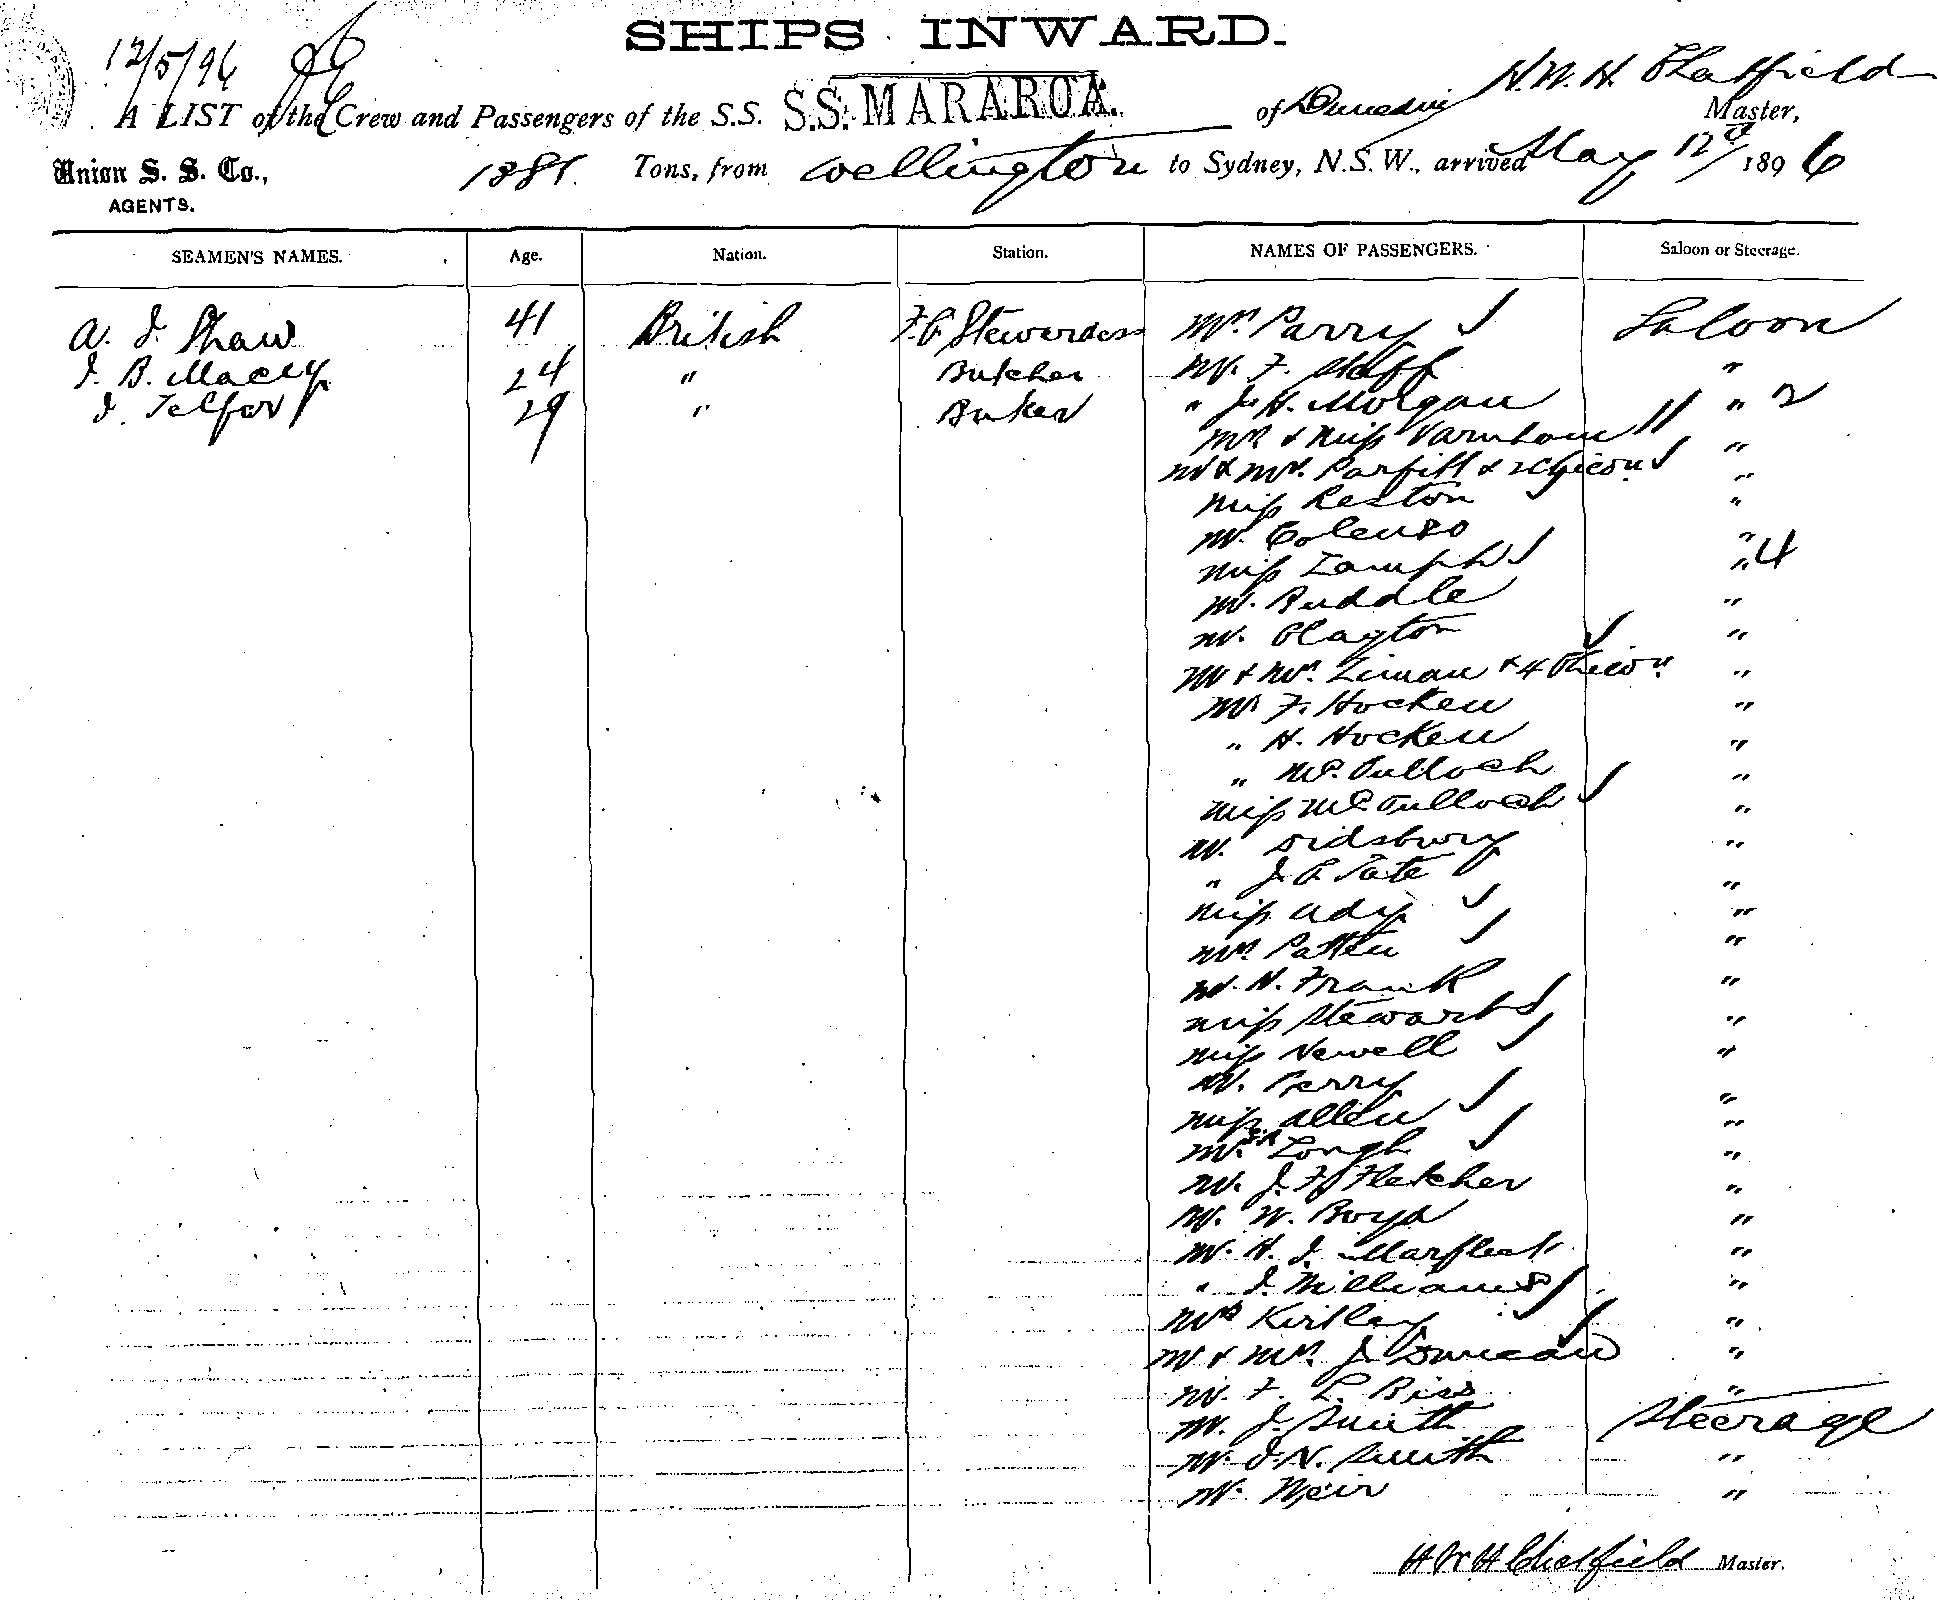 SHIPS INWARD.
12/5/96
A LIST of the Crew and Passengers of the S.S. S.S. MARAROA. of Dunedin H. W. H. Chatfield Master,
Union S. S. Co., AGENTS. 1881 Tons, from Wellington to Sydney, N.S.W., arrived May 12th 1896
SEAMEN'S NAMES. Age. Nation. Station. NAMES OF PASSENGERS. Saloon or Steerage.
A. J. Shaw 41 British F. C. Stewardess Mrs Parry Saloon
J. B. Macey 24 " Butcher Mr. F. Skeff "
J. Telfor 29 " Baker " J. H. Morgan " 2
Mrs & Miss Varnham "
Mr & Mrs. Parfitt & 2 Chicorn "
Miss Reston "
Mr. Colenso "
Miss Lamph " 4
Mr. Buddle "
Mr. Clayton "
Mr & Mrs. & 4 "
Mr F. Hocken "
" H. Hocken "
" McCulloch "
Miss McCulloch "
Mr. Didsbury "
" J. C. Tate "
Miss Ady "
Mrs Patten "
Mr. H. Frank "
Miss Stewart "
Miss Newell "
Mr. Perry "
Miss Allen "
Mrs Lough "
Mr. J. F. Fletcher "
Mr. W. Boyd "
Mr. H. J. Marfleet "
" J. Williams "
Mrs Kirtley "
Mr & Mrs. J. Duncan "
Mr. F. L. Biss "
Mr. J. Smith Steerage
Mr. J. N. Smith "
Mr. Weir "
H W H Chatfield Master.